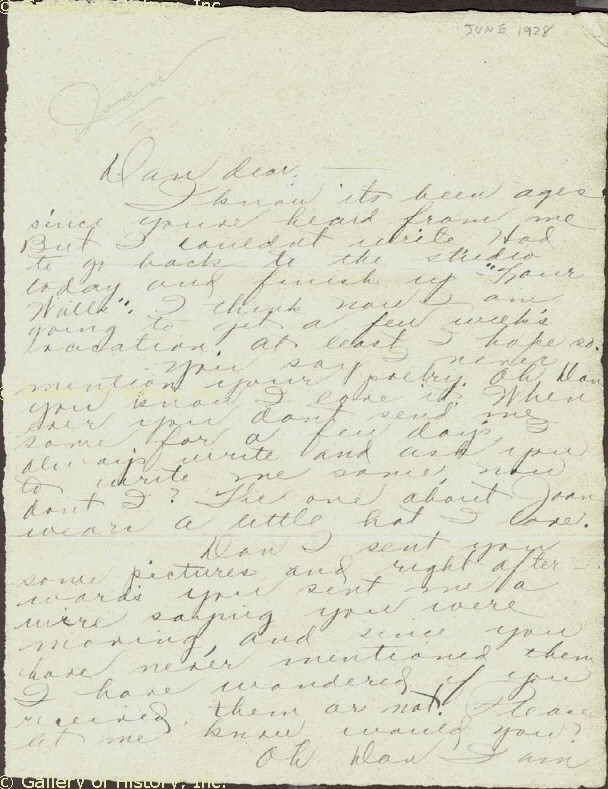 © Gallery of History, Inc.
JUNE 1928
Joan
Dan dear, —
I know its been ages
since you've heard from me
But I couldn't write. Had
to go back to the studio
today and finish up "Four
Walls". I think now I am
going to get a few week's
vacation. At least I hope so.
You say I never
mention your poetry. Oh Dan
you know I love it. When
ever you dont send me
some for a few days, I
always write and ask you
to write me some now
dont I? The one about Joan
wears a little hat I love.
Dan I sent you
some pictures and right after-
wards you sent me a
wire saying you were
moving, and since you
have never mentioned them
I have wondered if you
received them or not. Please
let me know would you?
Oh Dan I am
© Gallery of History, Inc.